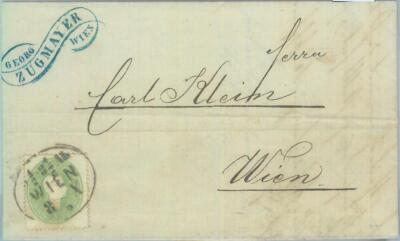 GEORG ZUGMAYER WIEN
Herrn
Carl Klein
Wien
WIEN